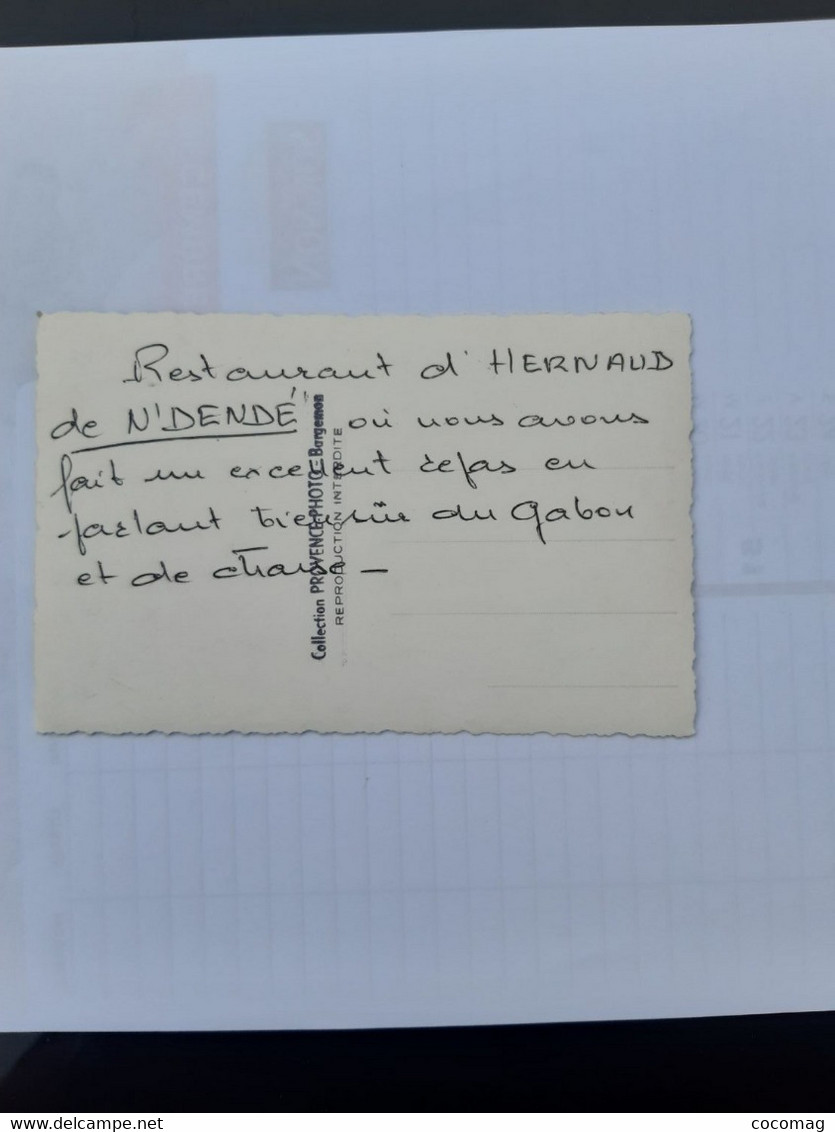 Restaurant d'HERNAUD
de N'DENDÉ où nous avons
fait un excellent repas en
parlant bien sûr du Gabon
et de chasse –
Collection PROVENCE-PHOTO - Bargemon
REPRODUCTION INTERDITE
© delcampe.net
cocomag